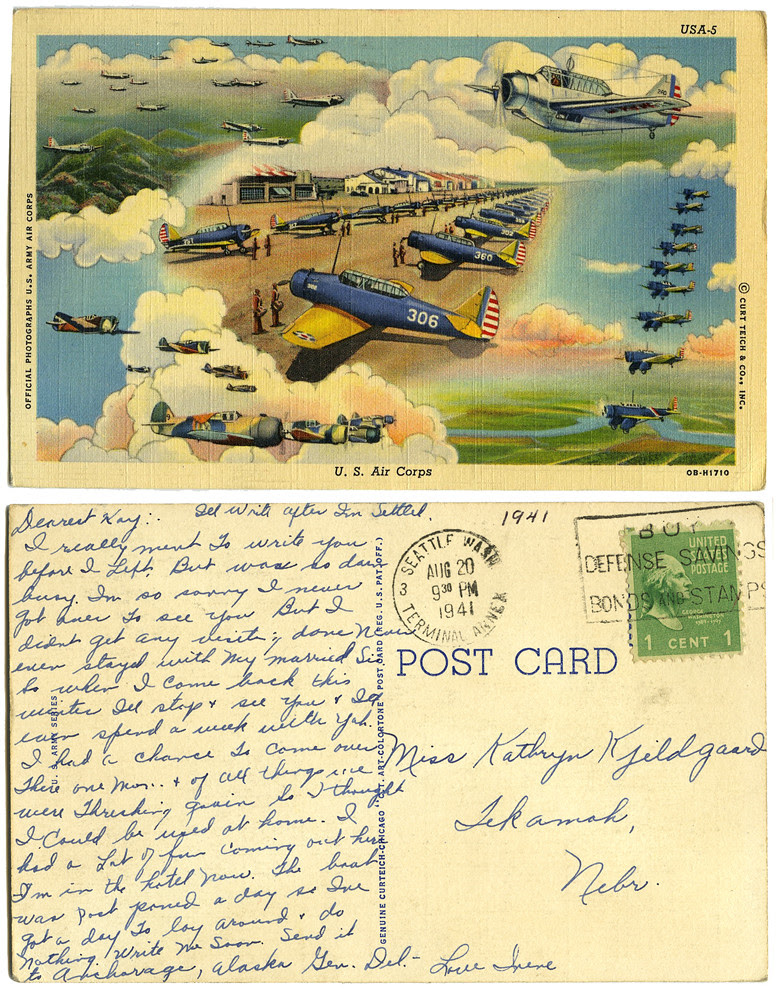 USA-5
OFFICIAL PHOTOGRAPHS U. S. ARMY AIR CORPS
© CURT TEICH & CO., INC.
306
360
U. S. Air Corps
OB-H1710
Dearest Kay:. Ill write after Im Settled.
I really ment To write you
before I Left. But was so darn
busy. Im so sorry I never
got over To see you But I
didnt get any visiting done Never
even stayed with My married Sis
So when I come back this
winter Ill stop & see you & Ill
even spend a week with yah.
I had a chance To come over
There one Morn. & of all things we
were Threshing grain So I thought
I Could be used at home. I
had a Lot of fun coming out here
I'm in the hotel Now. The boat
was Post poned a day so Ive
got a day To lay around & do
Nothing. Write Me Soon. Send it
to Anchorage, Alaska Gen. Del.- Love Irene
U. S. ARMY SERIES
GENUINE CURTEICH-CHICAGO "C.T. ART-COLORTONE" POST CARD (REG. U. S. PAT. OFF.)
1941
SEATTLE WASH
AUG 20
9 30 PM
1941
3
TERMINAL ANNEX
BUY
DEFENSE SAVINGS
BONDS AND STAMPS
UNITED
STATES
POSTAGE
GEORGE
WASHINGTON
1 CENT 1
POST CARD
Miss Kathryn Kjeldgaard
Tekamah,
Nebr.